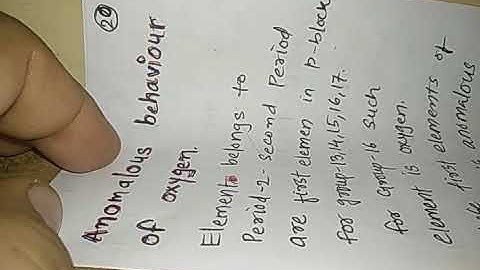 20
Anomalous behaviour
of oxygen.
Element belongs to
Period-2-second Period
are first elemen in p-block
for group-13,14,15,16,17.
for Group-16 such
element is oxygen.
first elements of
anomalous